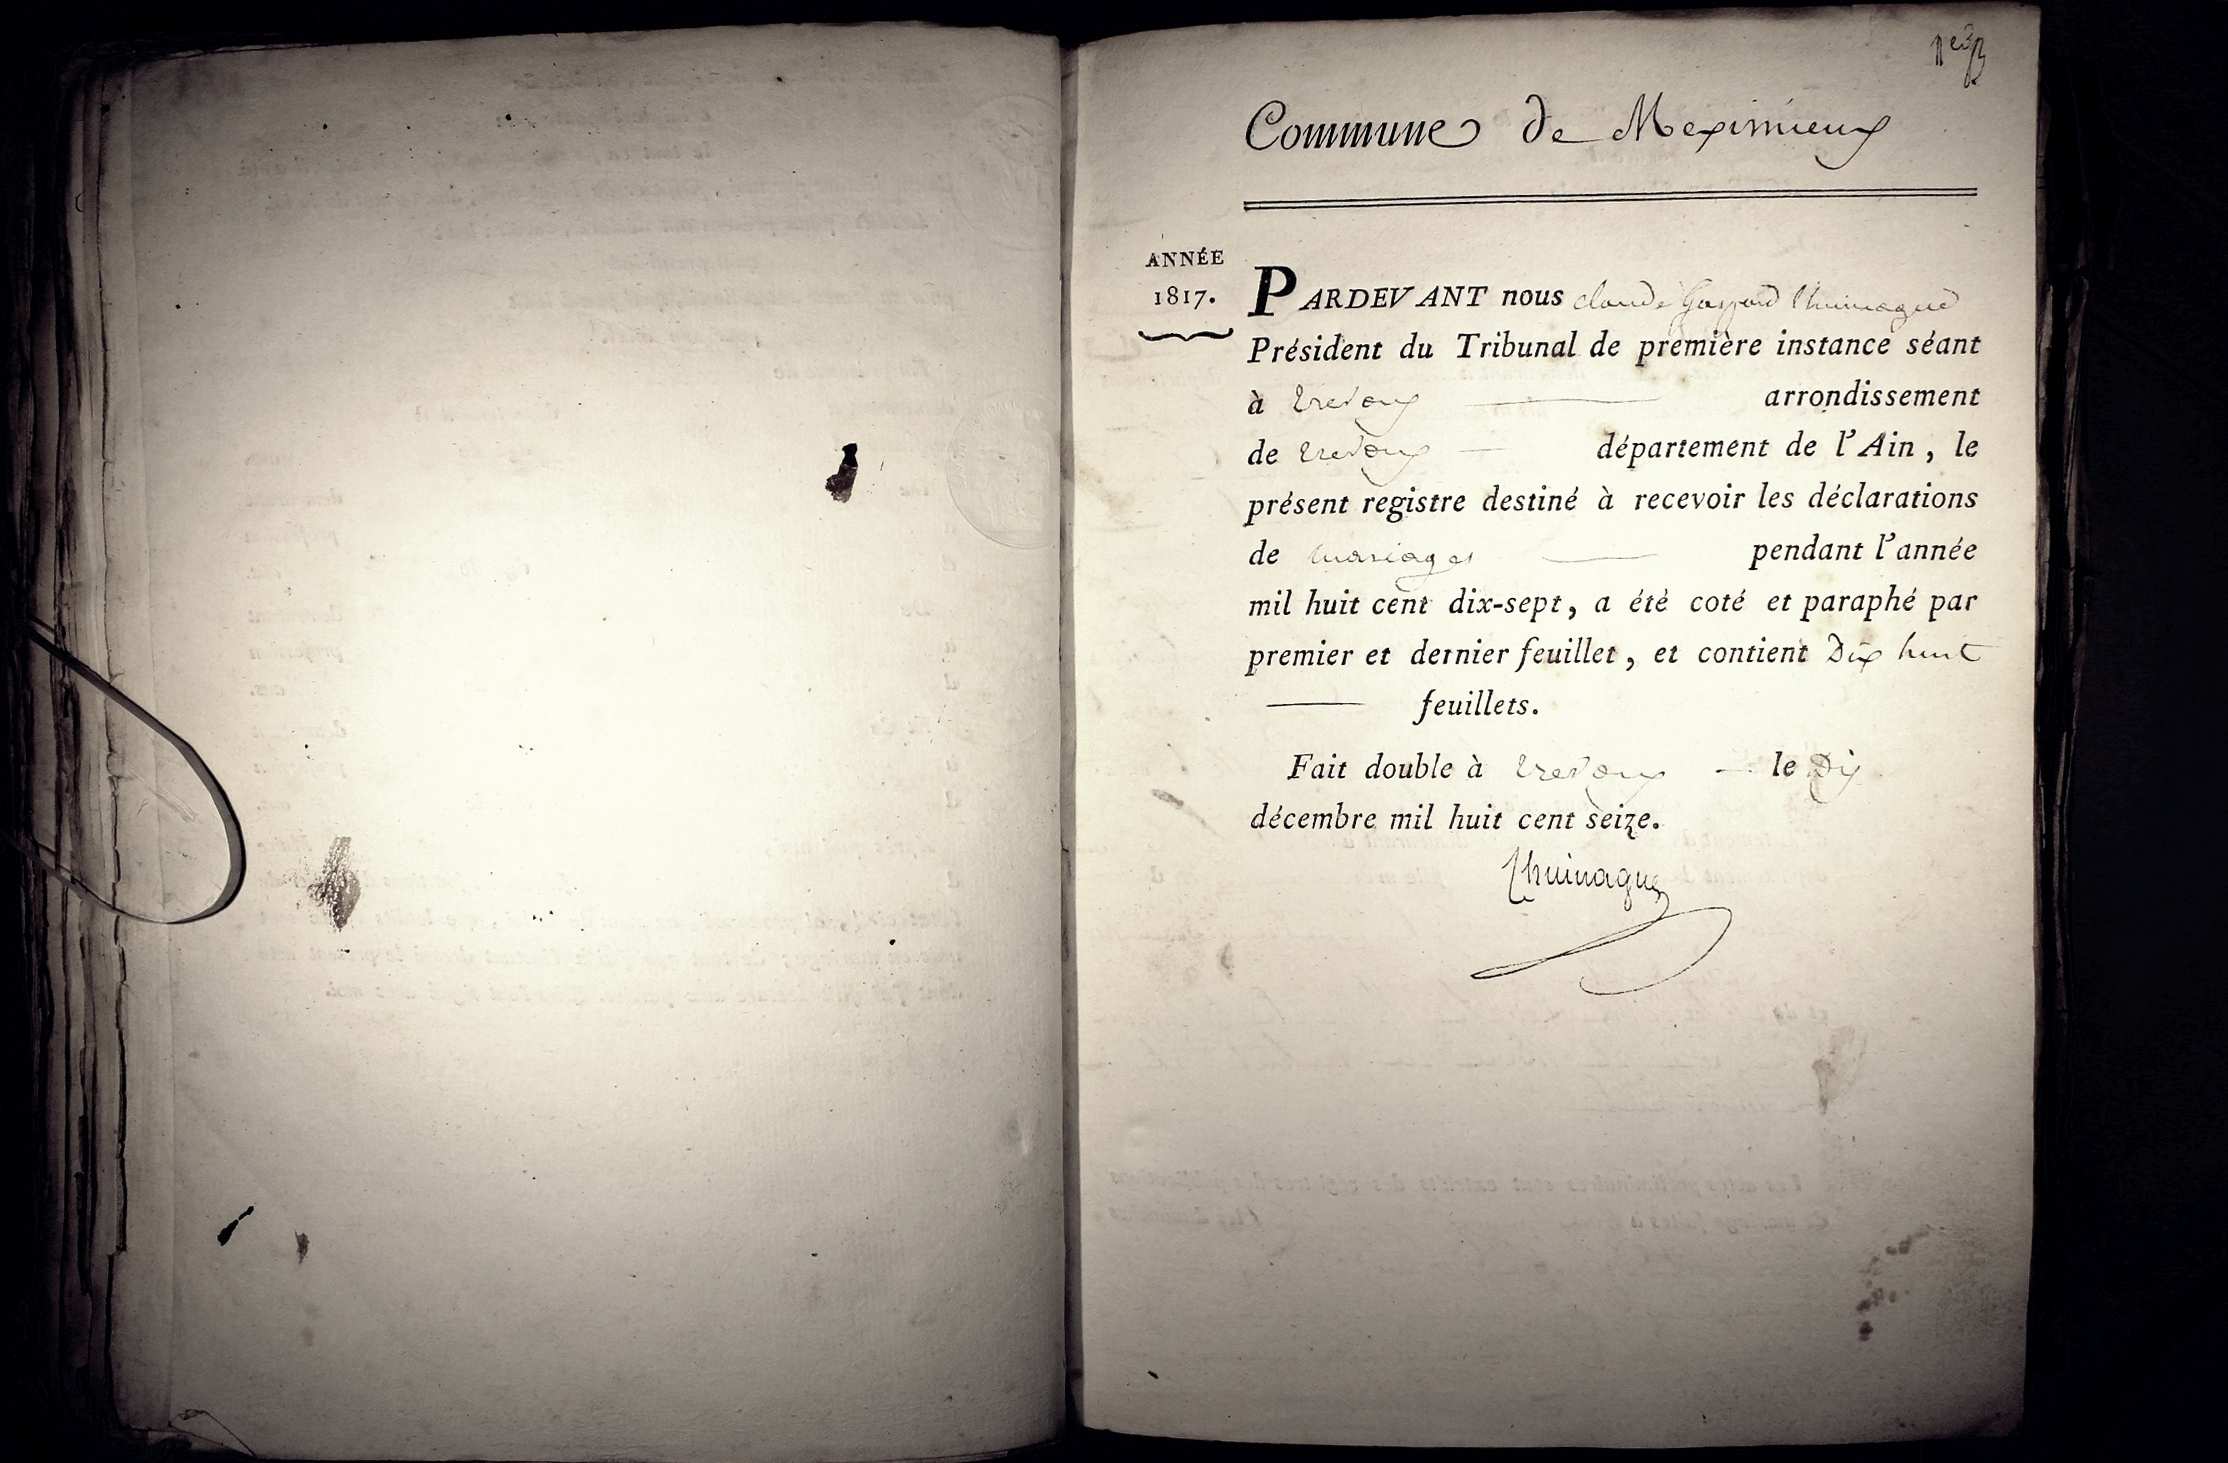 Commune de Meximieux
ANNÉE
1817.
PARDEVANT nous claude Gaspard Thuinague
Président du Tribunal de première instance séant
à trevoux arrondissement
de trevoux département de l'Ain, le
présent registre destiné à recevoir les déclarations
de mariages pendant l'année
mil huit cent dix-sept, a été coté et paraphé par
premier et dernier feuillet, et contient Dix huit
feuillets.
Fait double à trevoux le Dix
décembre mil huit cent seize.